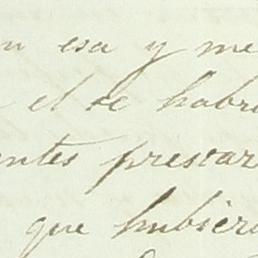 en esa y me
el se habr
entes prestar
que hubier